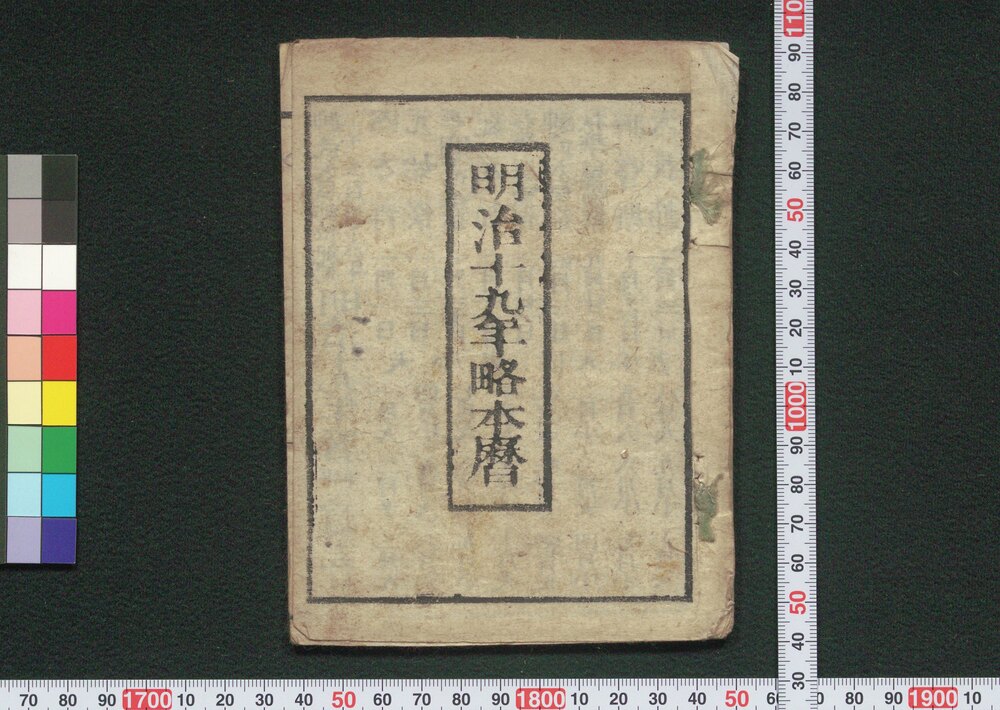 明治十九年略本暦
110
90
80
70
60
50
40
30
20
10
1000
90
80
70
60
50
40
30
70 80 90 1700 10 20 30 40 50 60 70 80 90 1800 10 20 30 40 50 6 80 90 1900 10